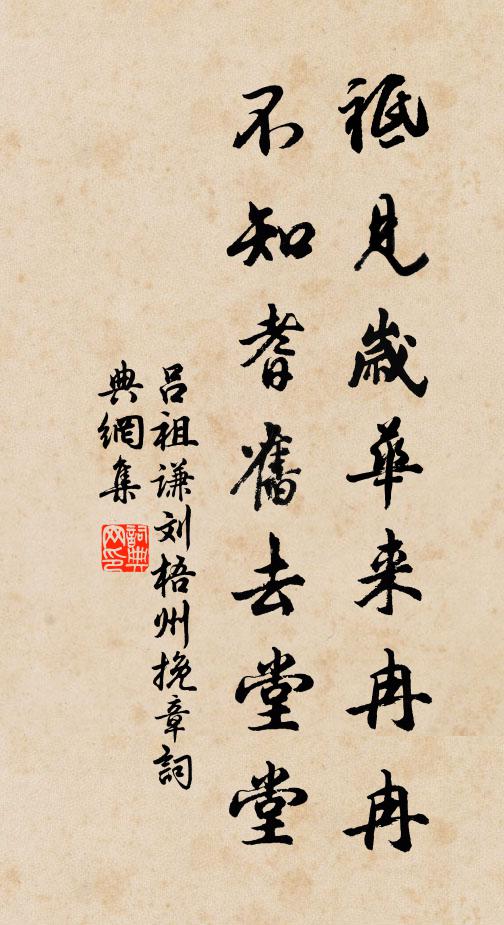 祗見歲華来冉冉
不知耆舊去堂堂
吕祖谦刘梧州挽章詞
典網集
詞典網印